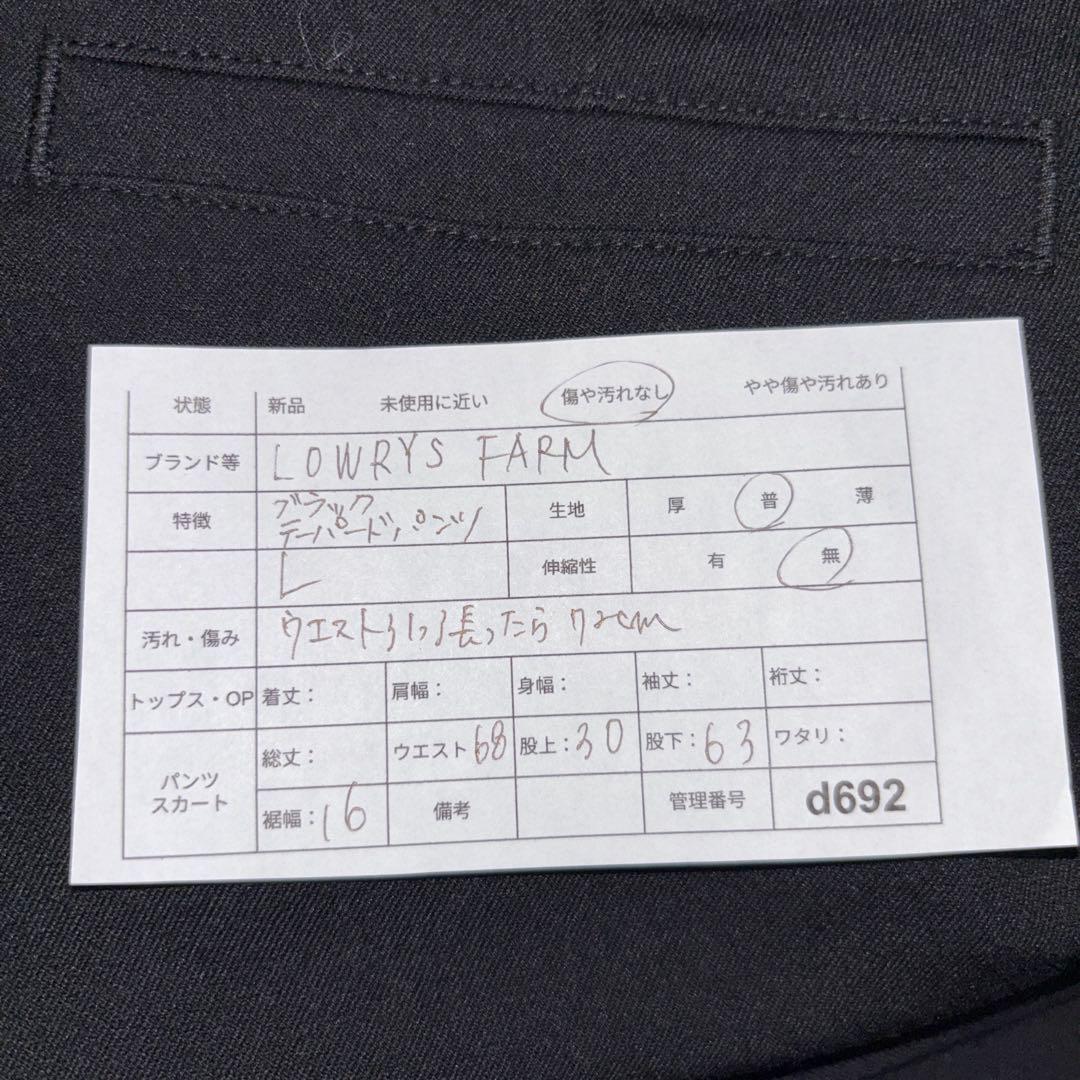 状態 新品 未使用に近い 傷や汚れなし やや傷や汚れあり
ブランド等 LOWRYS FARM
特徴 ブラック
テーパードパンツ 生地 厚 普 薄
L 伸縮性 有 無
汚れ・傷み ウエスト引っ張ったら 72cm
トップス・OP 着丈： 肩幅： 身幅： 袖丈： 裄丈：
パンツ
スカート 総丈： ウエスト 68 股上：30 股下：63 ワタリ：
裾幅：16 備考 管理番号 d692